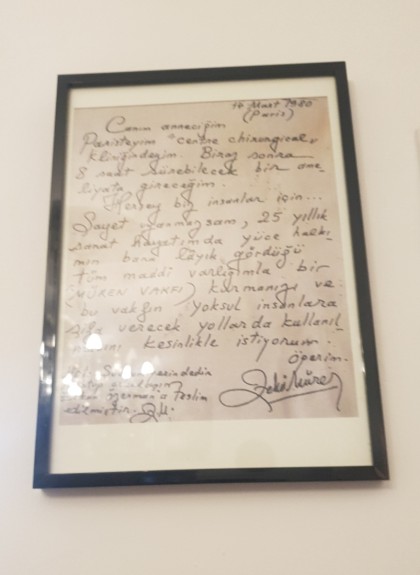 14 Mart 1980
(Paris)
Canım anneciğim
Paristeyim "centre chirurgical"
kliniğindeyim. Biraz sonra
8 saat sürebilecek bir ame_
liyata gireceğim.
Herşey biz insanlar için...
Şayet uyanmazsam, 25 yıllık
sanat hayatımda yüce halkı_
mın bana lâyık gördüğü
tüm maddî varlığımla bir
(MÜREN VAKFI) kurmanızı ve
bu vakfın yoksul insanlara
şifa verecek yollarda kullanıl_
masını kesinlikle istiyorum.
öperim.
Zeki Müren
teslim
edilmiştir.